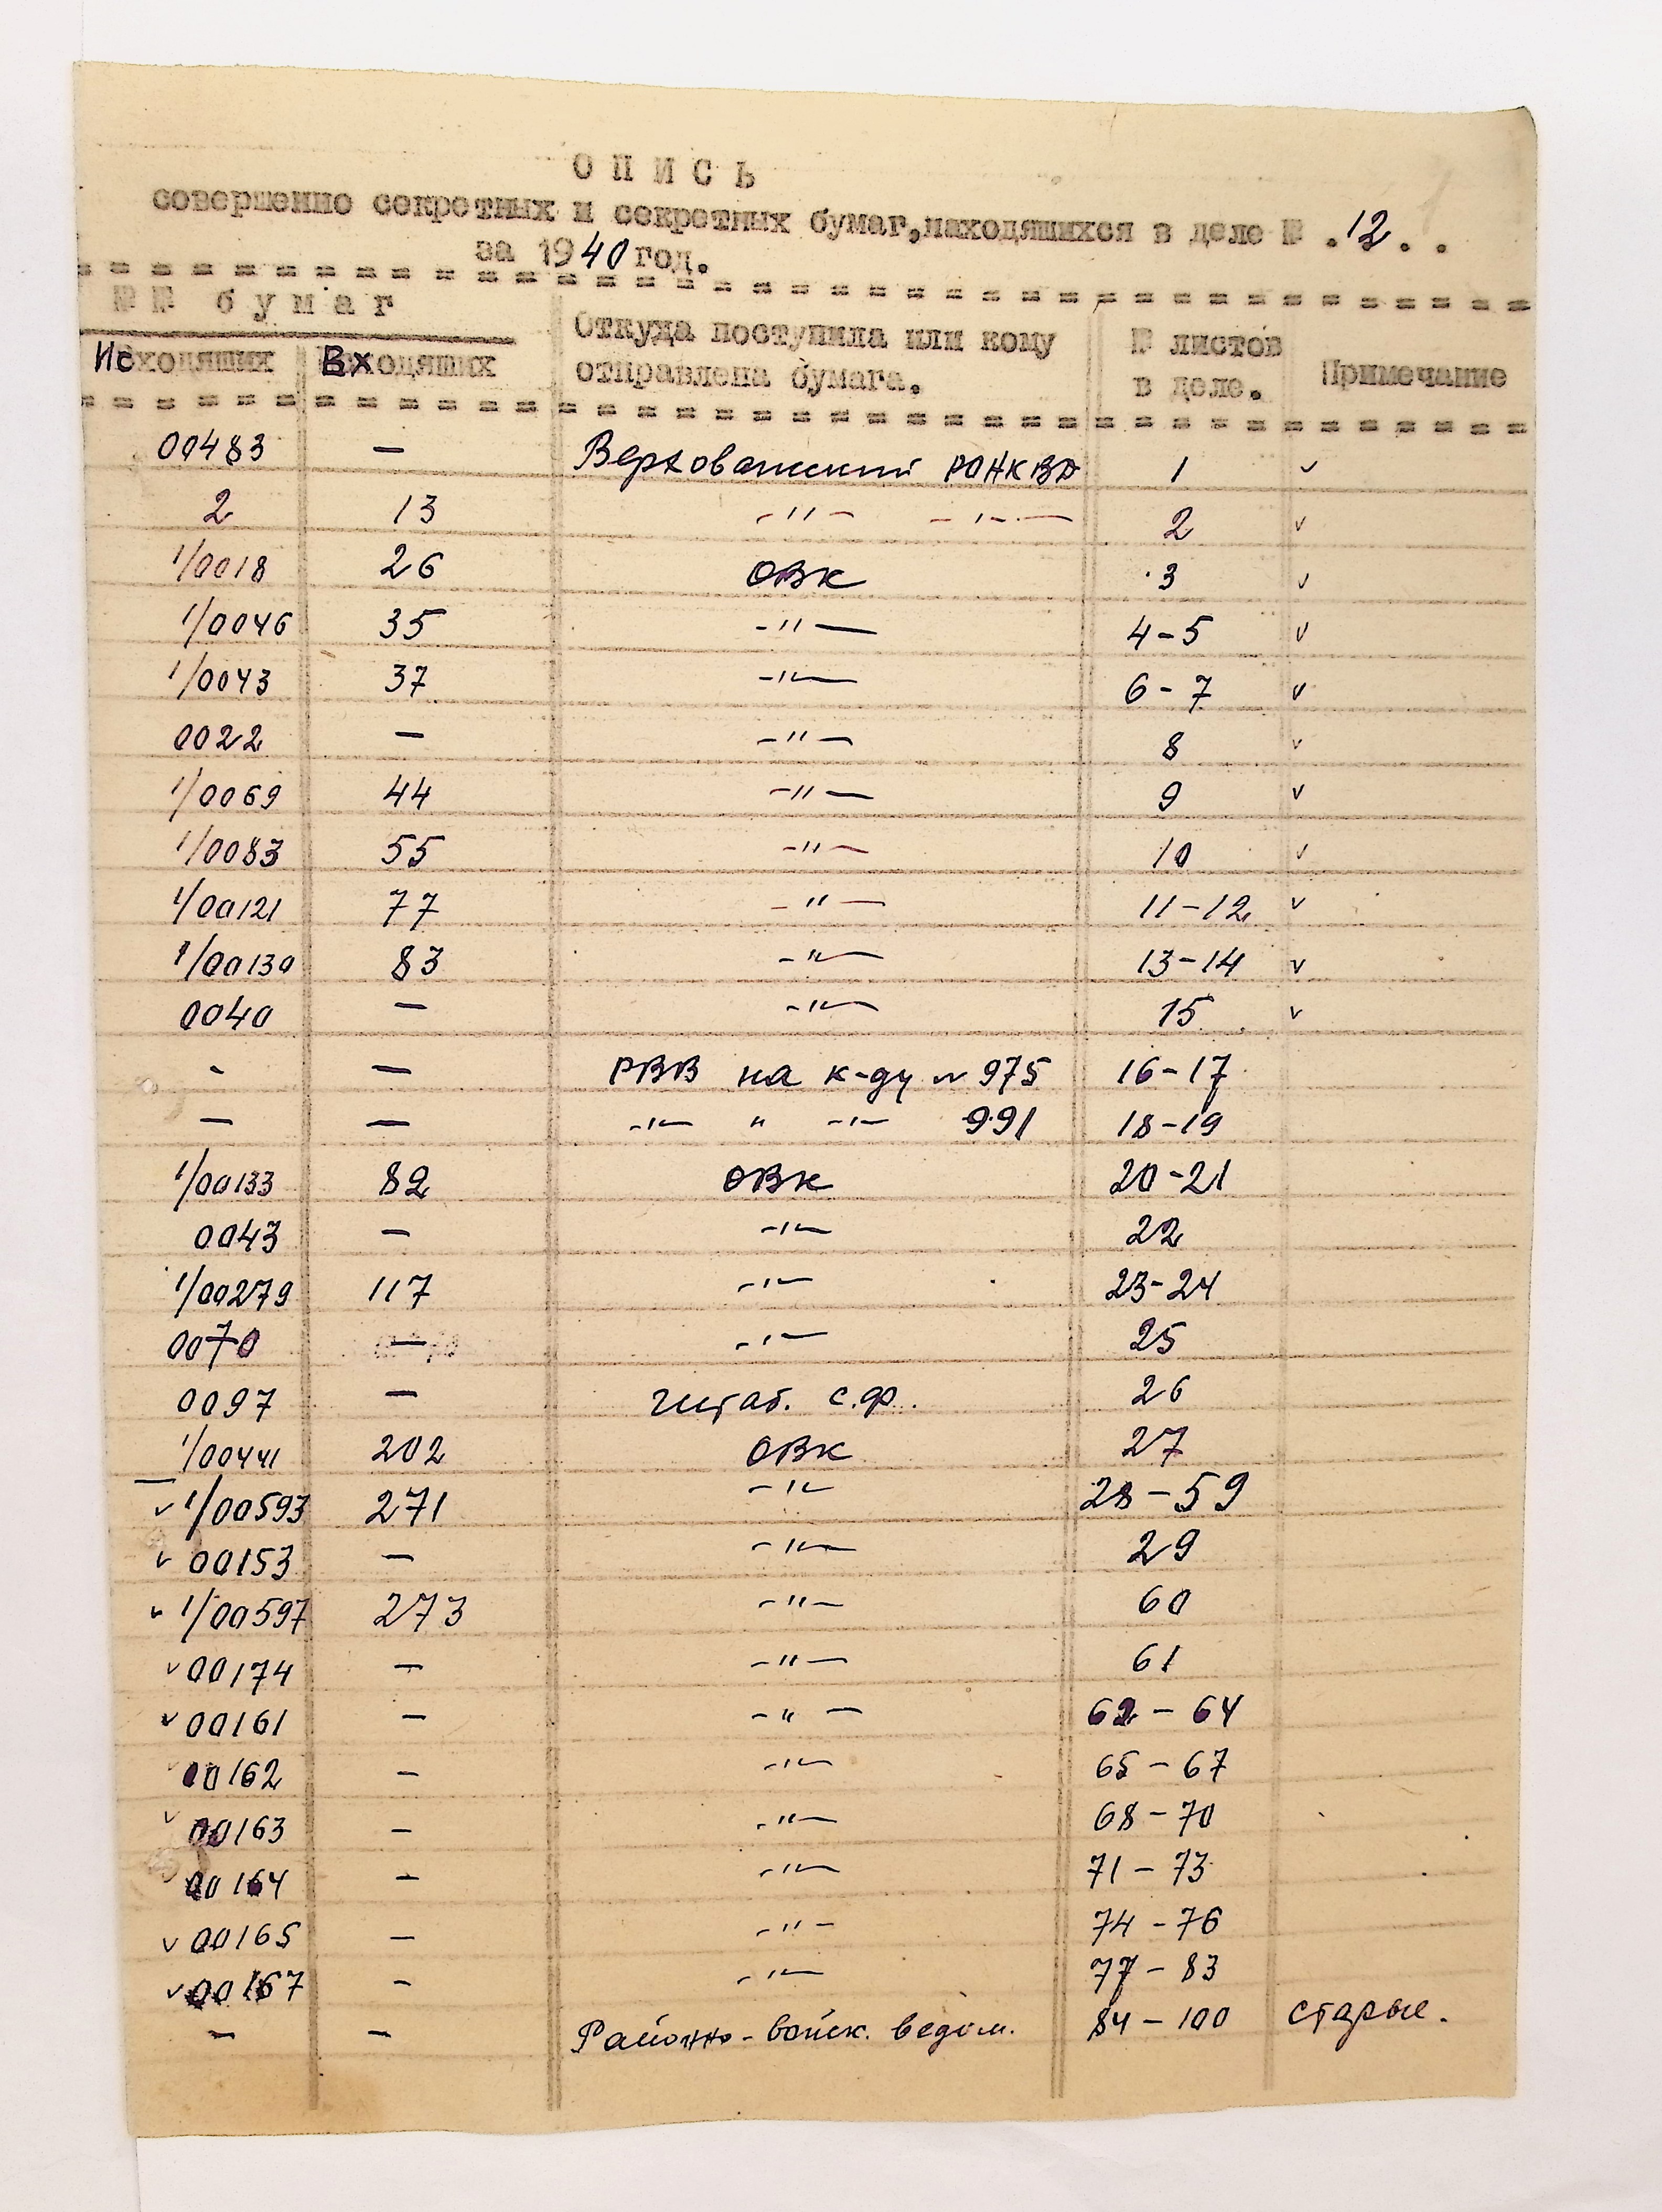 О П И С Ь
совершенно секретных и секретных бумаг, находящихся в деле № .12. .
за 1940 год.
№№ бумаг
Исходящих Входящих Откуда поступила или кому отправлена бумага. № листов в деле. Примечание
00483 — Верховажский РОНКВД 1 ✓
2 13 -"- -"- 2 ✓
1/0018 26 ОВК 3 ✓
1/0046 35 -"- 4-5 ✓
1/0043 37 -"- 6-7 ✓
0022 — -"- 8 ✓
1/0069 44 -"- 9 ✓
1/0083 55 -"- 10 ✓
1/00121 77 -"- 11-12 ✓
1/00130 83 -"- 13-14 ✓
0040 — -"- 15 ✓
- — РВВ на к-ду № 975 16-17
— — -"- " -"- 991 18-19
1/00133 82 ОВК 20-21
0043 — -"- 22
1/00279 117 -"- 23-24
0070 — -"- 25
0097 — штаб. с.ф. 26
1/00441 202 ОВК 27
✓ 1/00593 271 -"- 28-59
✓ 00153 — -"- 29
✓ 1/00597 273 -"- 60
✓ 00174 — -"- 61
✓ 00161 — -"- 62-64
✓ 00162 — -"- 65-67
✓ 00163 — -"- 68-70
00164 — -"- 71-73
✓ 00165 — -"- 74-76
✓ 00167 — -"- 77-83
— — Районно-войск. ведом. 84-100 старые.